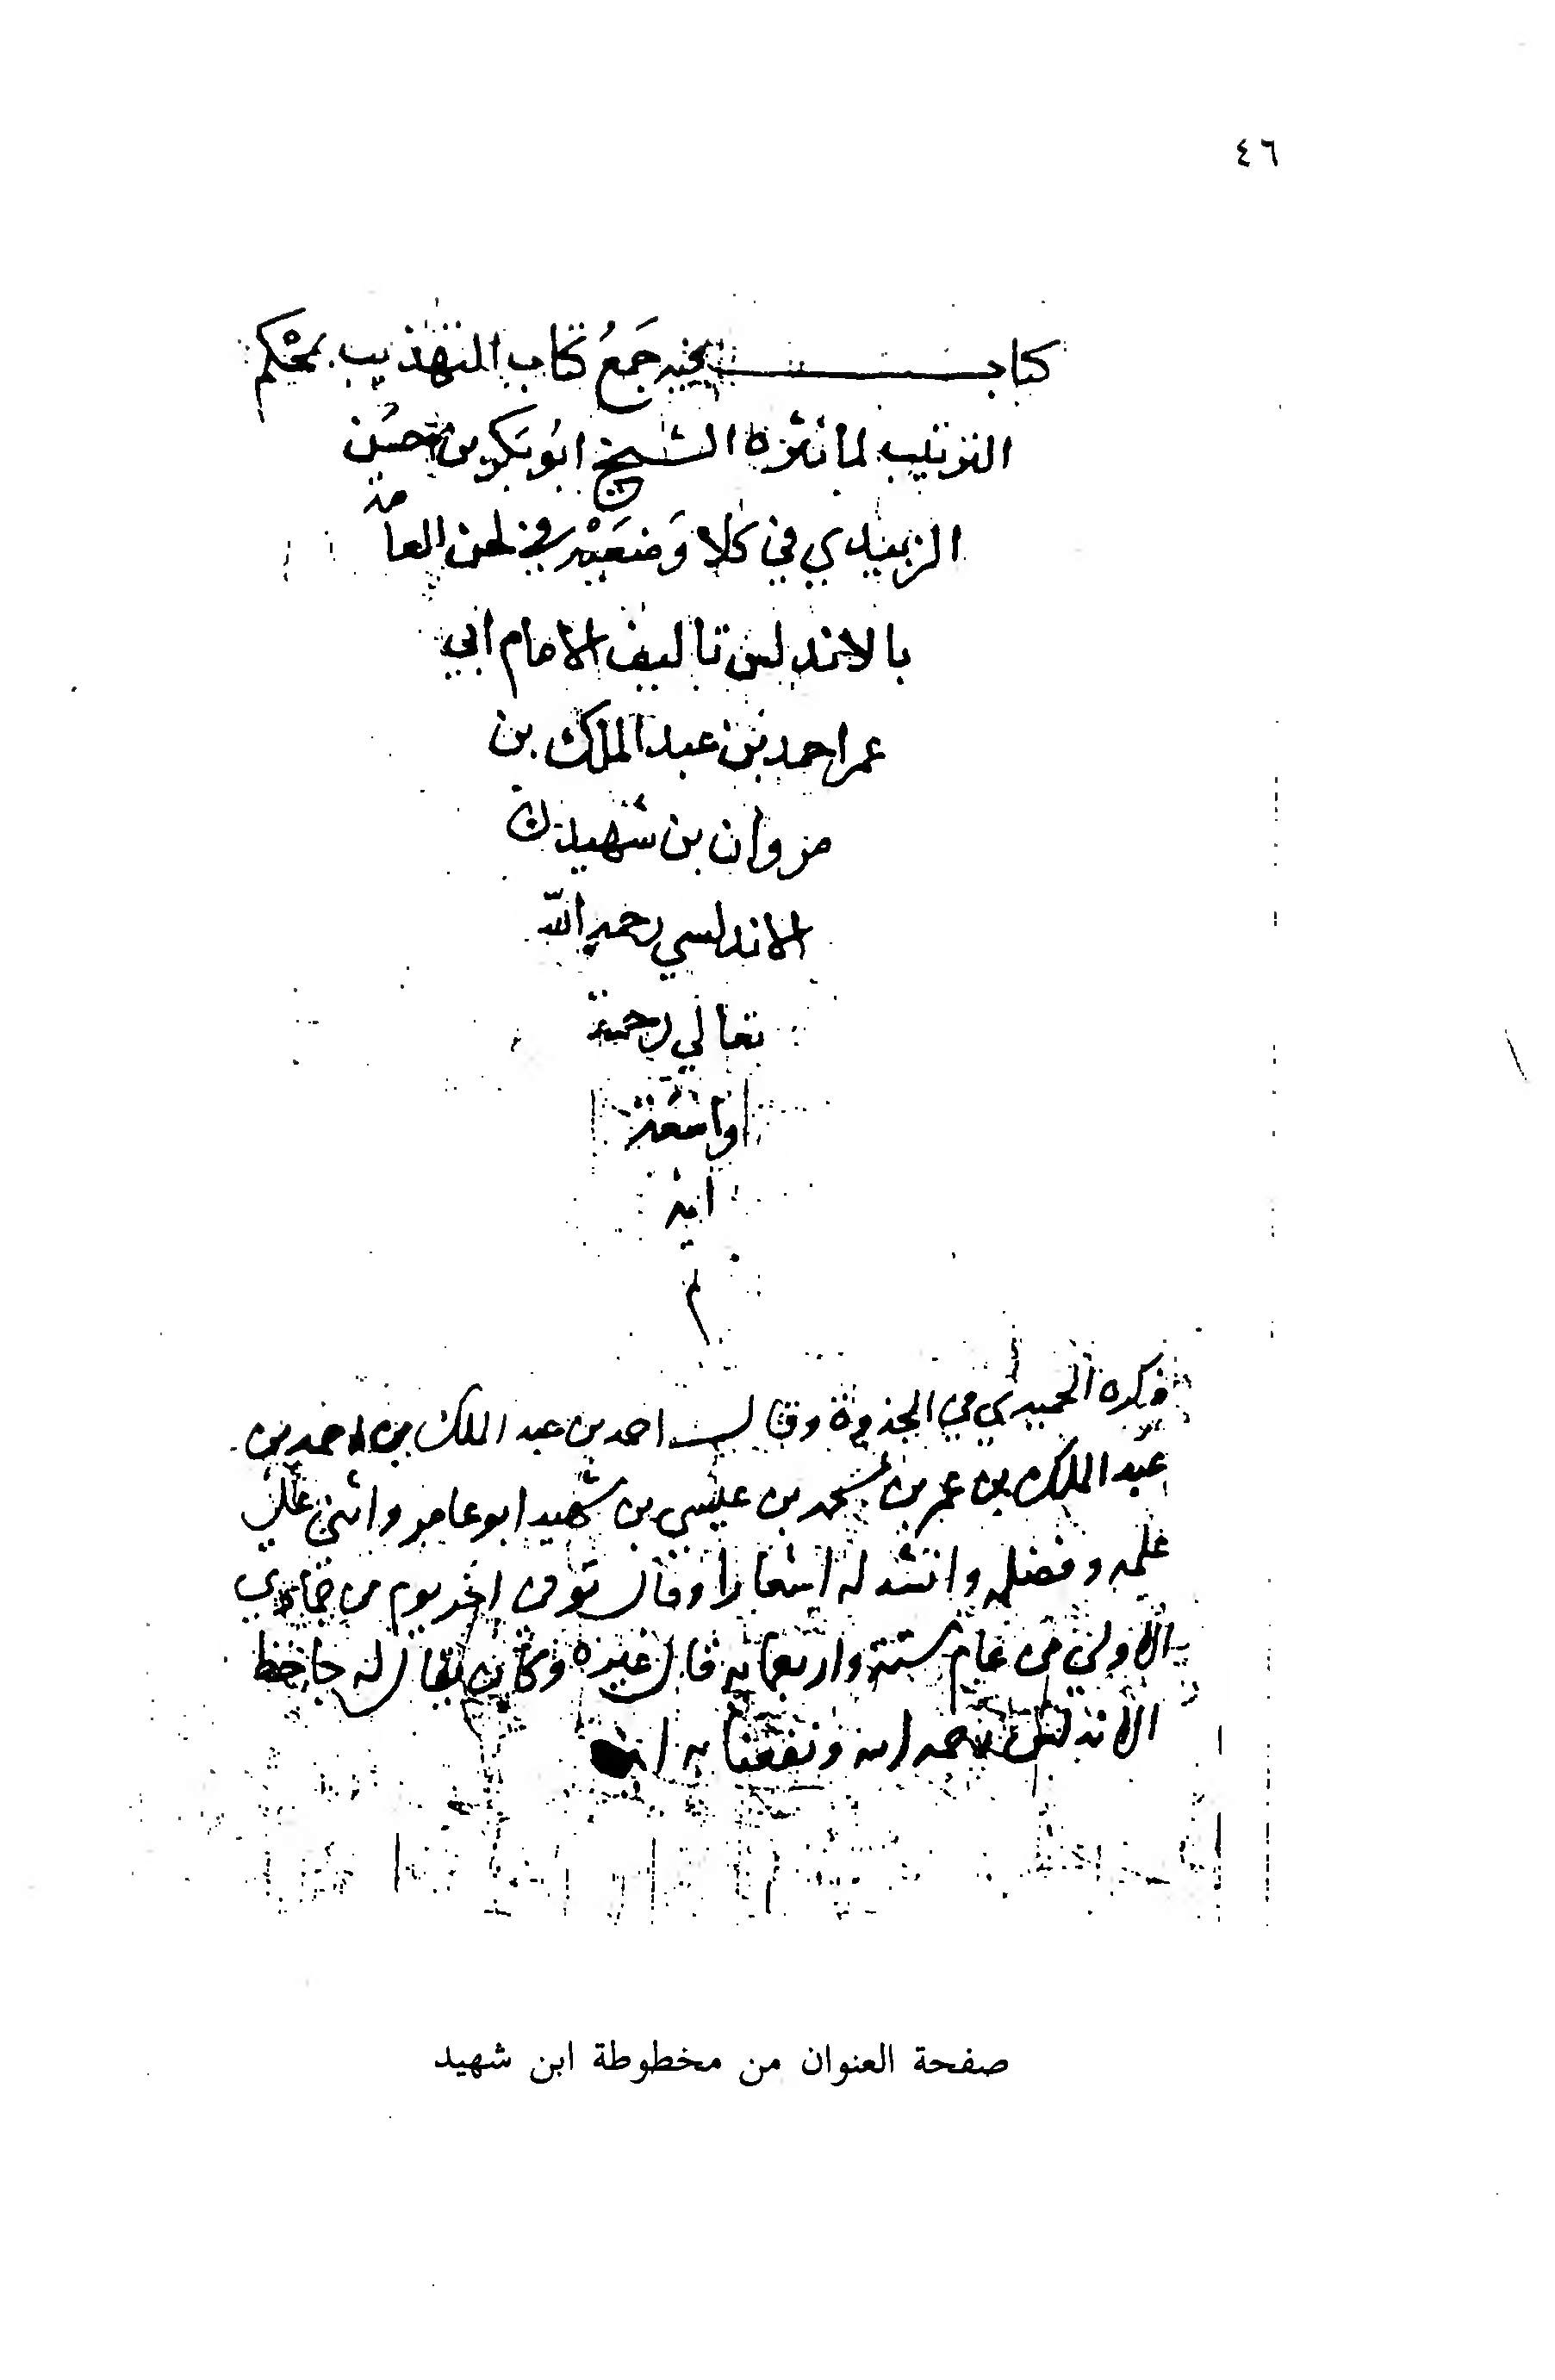 ٤٦
كتاب فيه جمع كتاب التهذيب بمحكم
الترتيب لما نثره الشيخ ابو بكر بن حسن
الزبيدي في كلا وضعيه في لحن العامة
بالاندلس تاليف الامام ابي
عمر احمد بن عبد الملك بن
مروان بن شهيد
الاندلسي رحمه الله
تعالي رحمة
واسعة
امين
م
ذكره الحميدي في الجذوة وقال احمد بن عبد الملك بن احمد بن
عبد الملك بن عمر بن محمد بن عيسى بن شهيد ابو عامر واثنى علي
علمه وفضله وانشد له اشعارا وقال توفى اخر يوم من جمادي
الاولي من عام ستة واربعمايه قال غيره وكان يقال له جاحظ
الاندلس رحمه الله ونفعنا به
صفحة العنوان من مخطوطة ابن شهيد